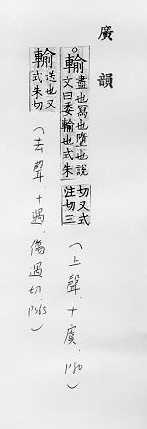 廣韻
輸 盡也寫也墮也說
文曰委輸也式朱
切又式
注切三
(上聲.十虞.p80)
輸 送也又
式朱切
(去聲.十遇.傷遇切.p365)